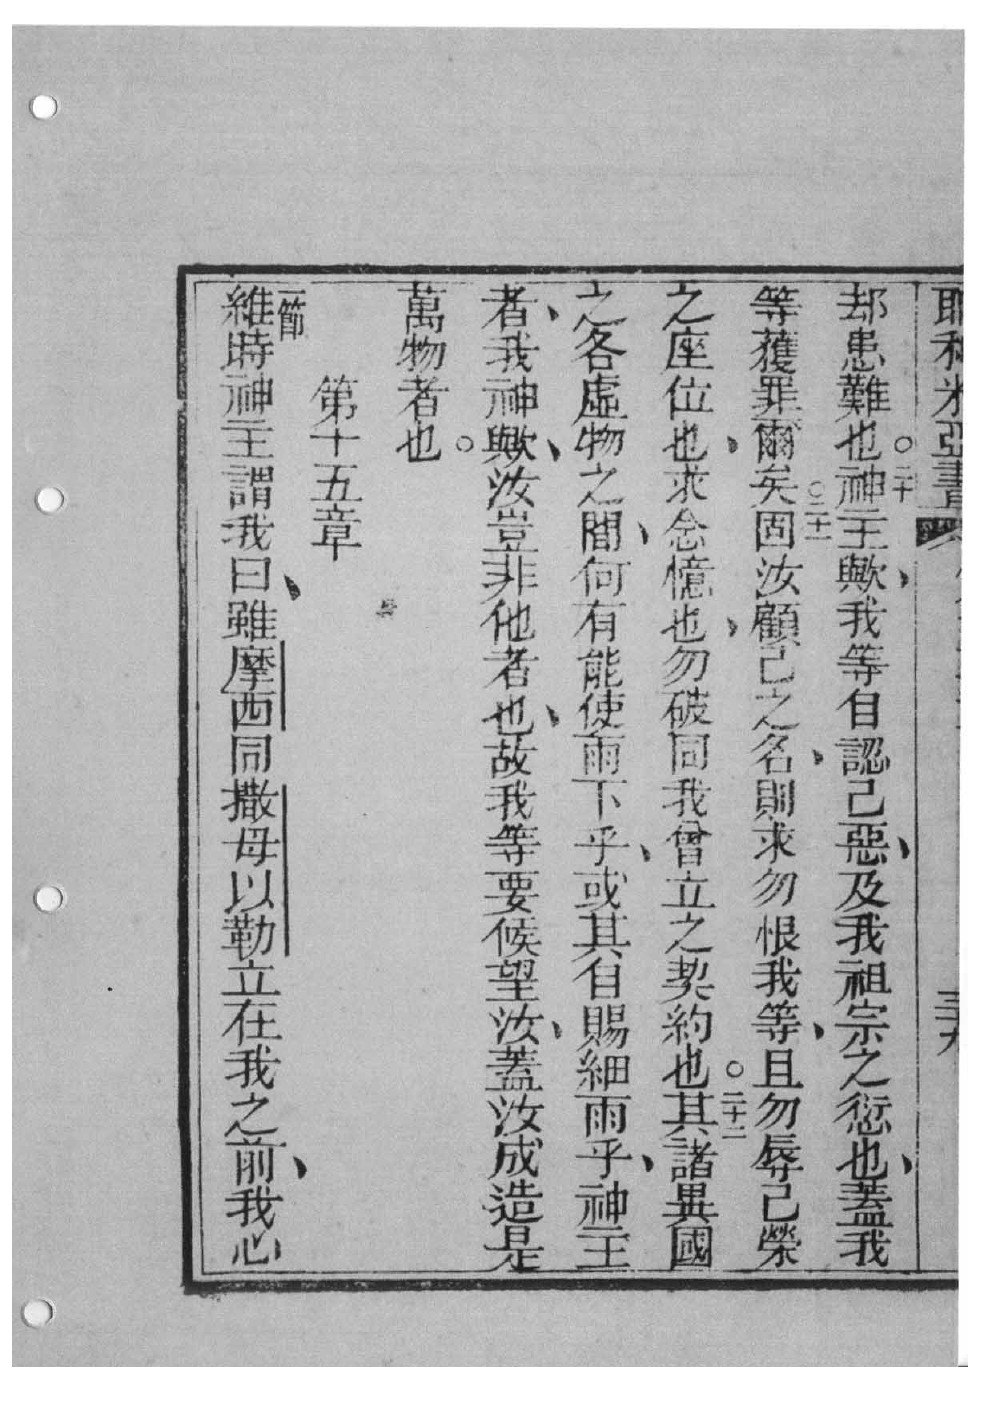 耶利米亞書
三九
却患難也○二十神主歟、我等自認己惡、及我祖宗之愆也、蓋我
等獲罪爾矣○二十一固汝顧己之名、則求勿恨我等、且勿辱己榮
之座位也、求念憶也、勿破同我曾立之契約也○二十二其諸異國
之各虛物之間、何有能使雨下乎、或其自賜細雨乎、神主
者、我神歟、汝豈非他者也、故我等要候望汝、蓋汝成造是
萬物者也○
第十五章
一節維時神主謂我曰、雖摩西同撒母以勒立在我之前、我心